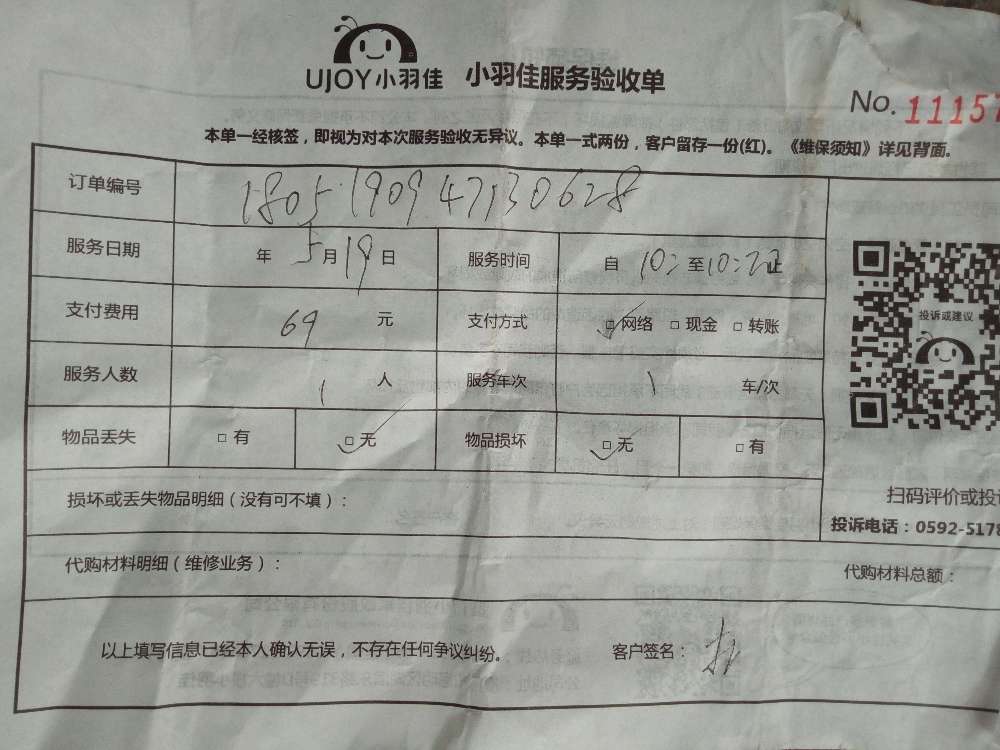 UJOY小羽佳 小羽佳服务验收单
No. 11157
本单一经核签，即视为对本次服务验收无异议。本单一式两份，客户留存一份(红)。《维保须知》详见背面。
订单编号 1805190947130628
服务日期 年 5月19日 服务时间 自 10: 至10:22止
支付费用 69 元 支付方式 ☑网络 □现金 □转账
服务人数 1 人 服务车次 1 车/次
物品丢失 □有 ☑无 物品损坏 ☑无 □有
投诉或建议
扫码评价或投
损坏或丢失物品明细（没有可不填）：
投诉电话：0592-5178
代购材料明细（维修业务）： 代购材料总额：
以上填写信息已经本人确认无误，不存在任何争议纠纷。 客户签名：